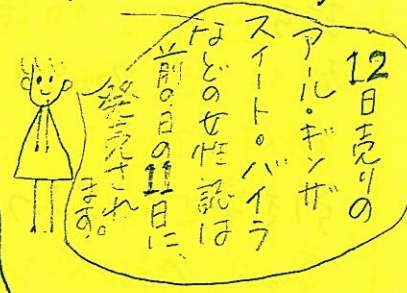 12日売りの
アール・ギンザ
スイート・バイラ
などの女性誌は
前の日の11日に、
発売され
ます。